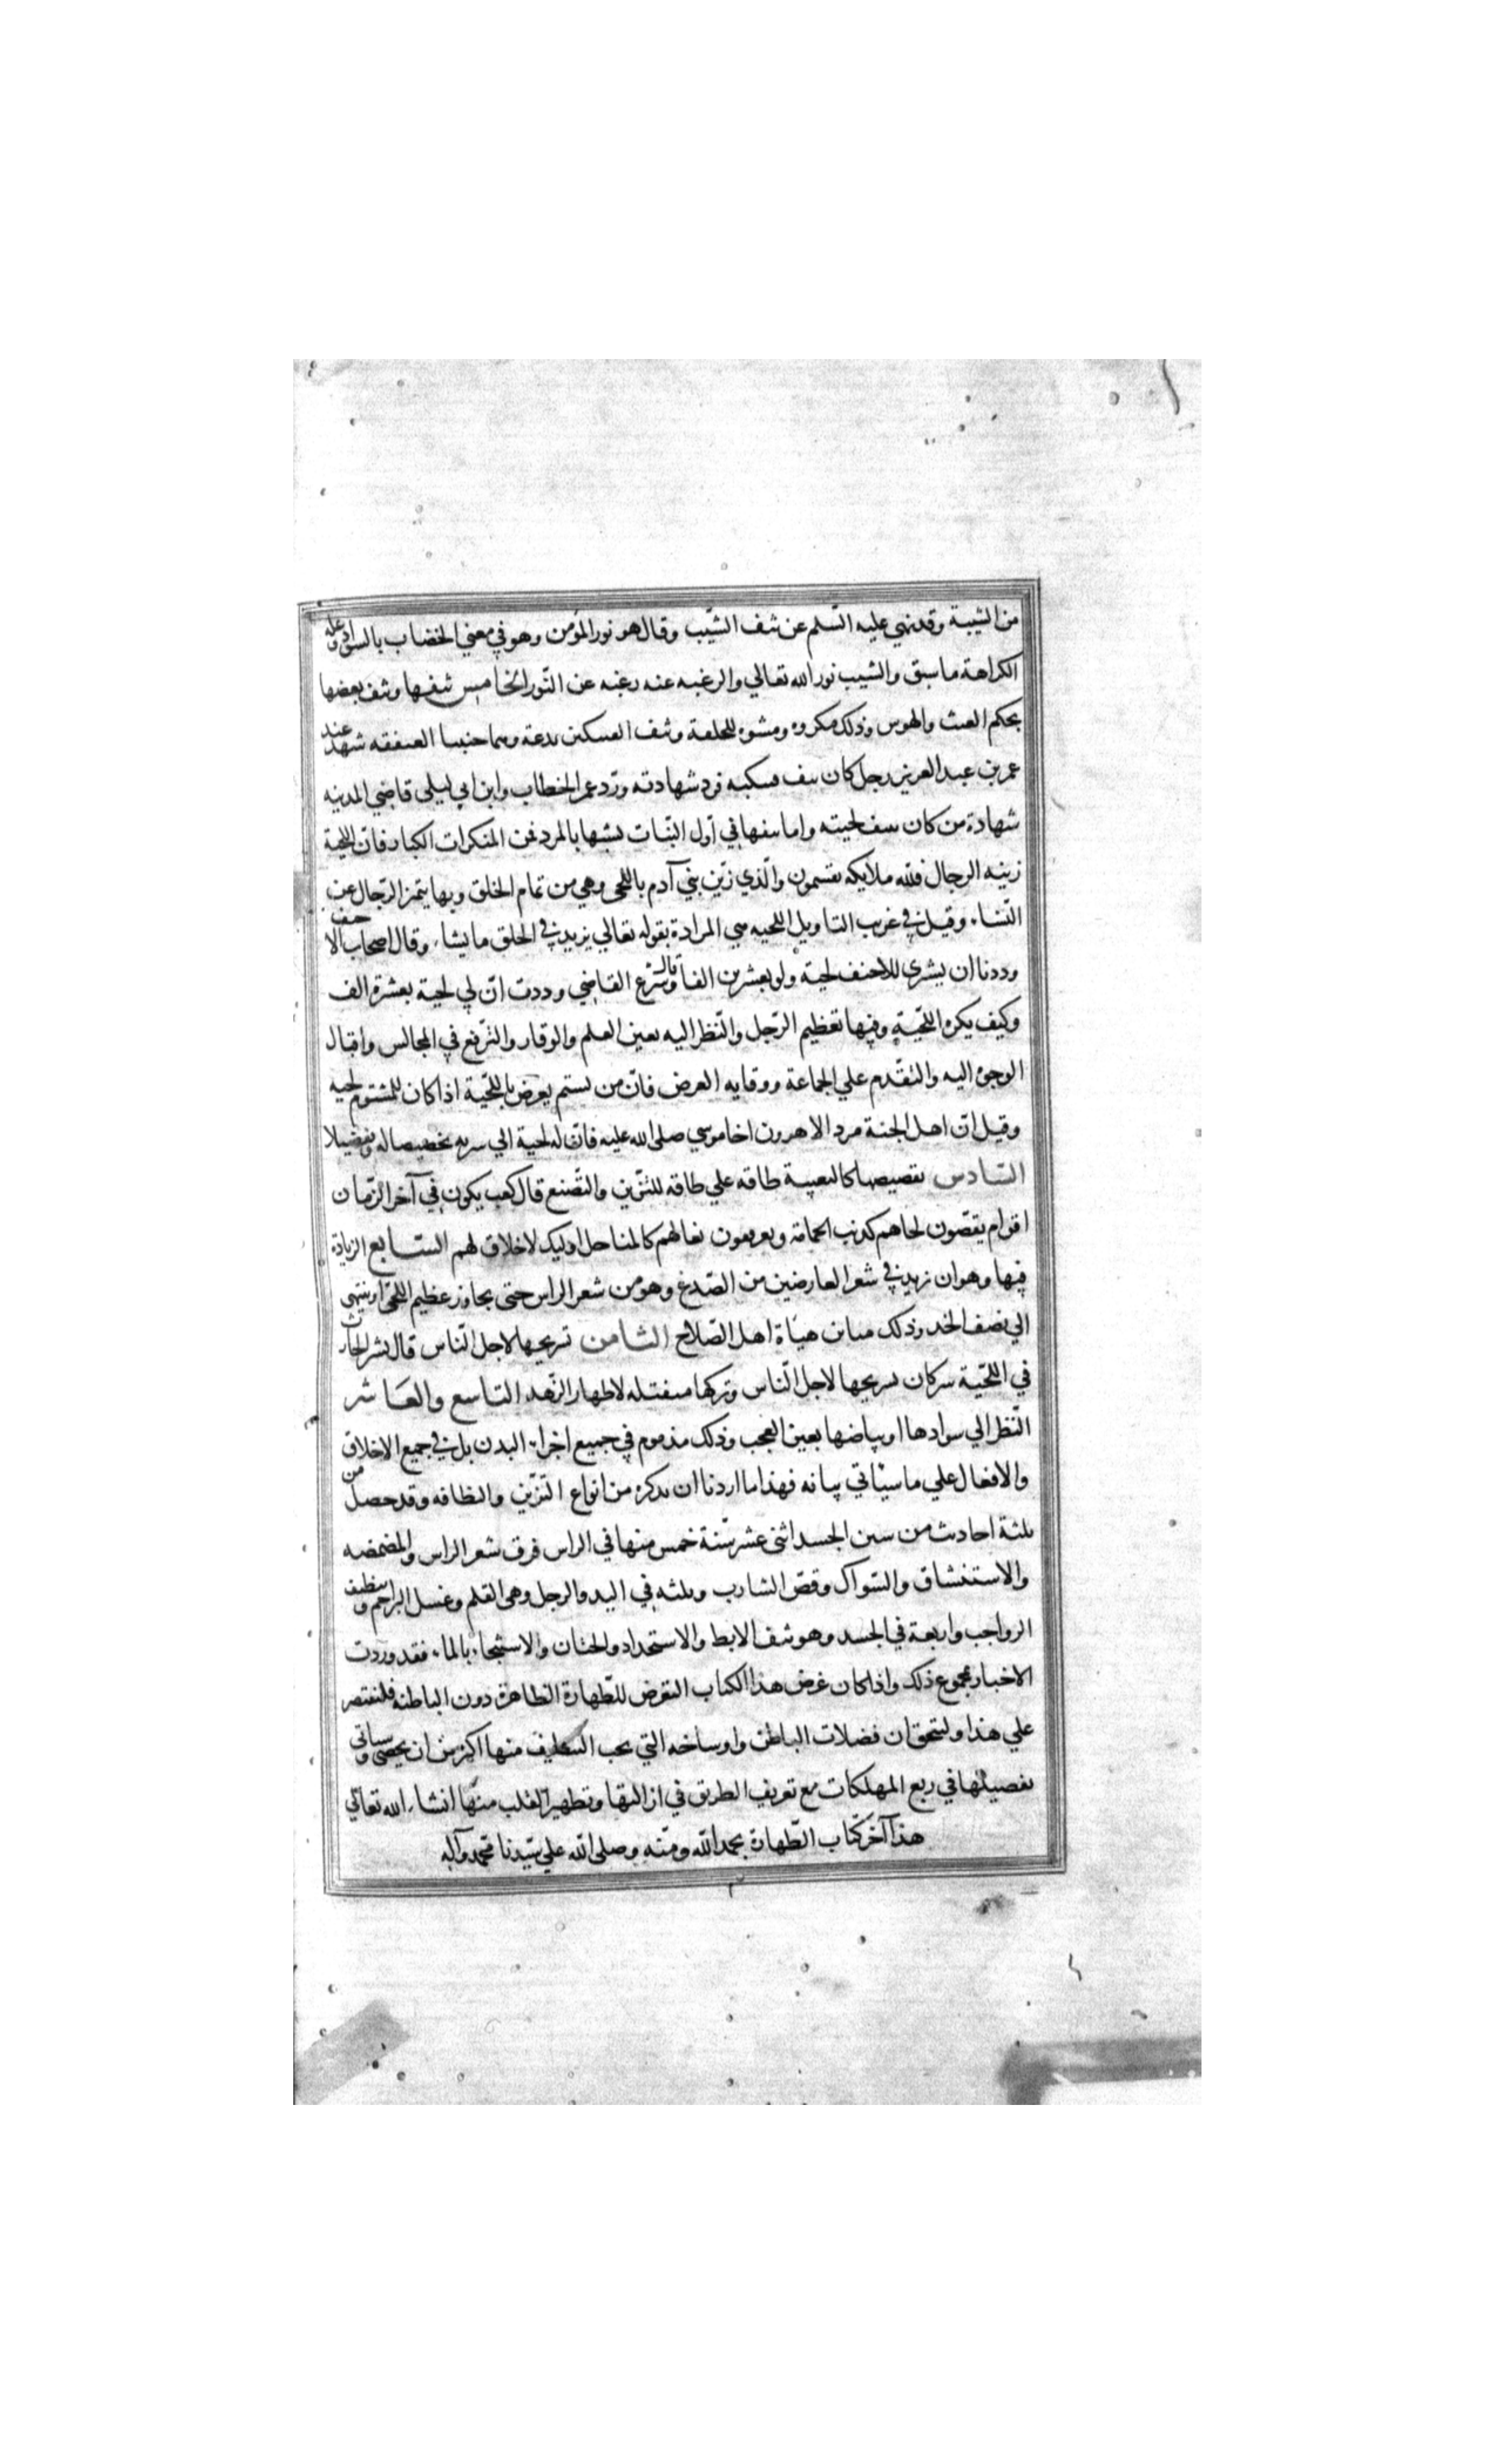 من الشيبة وقد نهي عليه السّلم عن نتف الشّيب وقال هو نور المؤمن وهو في معني الخضاب بالسواد وعلة
الكراهة ما سبق والشيب نور الله تعالي والرغبه عنه رغبه عن النّور الخامس نتفها ونتف بعضها
بحكم العبث والهوس وذلك مكروه ومشوه للخلقة ونتف الفنيكين بدعة وهما جنبتا العنفقه شهد عند
عمر بن عبد العزيز رجل كان ينتف فنيكيه فرد شهادته وردّ عمر الخطاب وابن ابي ليلى قاضي المدينه
شهادة من كان ينتف لحيته واما نتفها في اوّل النّبات تشبها بالمرد فمن المنكرات الكبار فانّ اللحية
زينه الرجال فلله ملايكه يقسمون والّذي زيّن بني آدم باللحى وهي من تمام الخلق وبها يتميز الرّجال عن
النّساء وقيل في غريب التاويل اللحيه هي المرادة بقوله تعالي يزيد في الخلق ما يشاء وقال اصحاب الاحنف
وددنا ان يشتري للاحنف لحية ولو بعشرين الفا وقال شريح القاضي وددت انّ لي لحية بعشرة الف
وكيف يكره اللّحية وفيها تعظيم الرّجل والنّظر اليه بعين العلم والوقار والتّرفع في المجالس واقبال
الوجوه اليه والتّقدم علي الجماعة ووقايه العرض فانّ من يستم يعرض باللّحية اذا كان للمشتوم لحيه
وقيل انّ اهل الجنة مرد الا هرون اخا موسي صلى الله عليه فانّ له لحية الي سرته تخصيصا له وتفضيلا
السّادس تقصيصها كالتعبية طاقه علي طاقه للتّزيّن والتّصنع قال كعب يكون في آخر الزّمان
اقوام يقصّون لحاهم كذنب الحمامة ويعرقبون نعالهم كالمناجل اوليك لا خلاق لهم السّابع الزيادة
فيها وهو ان تزيد في شعر العارضين من الصّدغ وهو من شعر الراس حتى يجاوز عظيم اللّحى او ينتهي
الي نصف الخد وذلك مباين هيأة اهل الصّلاح الثامن تسريحها لاجل النّاس قال بشر الحارث
في اللّحية شركان تسريحها لاجل النّاس وتركها متفتله لاظهار الزّهد التاسع والعاشر
النّظر الي سوادها او بياضها بعين العجب وذلك مذموم في جميع اجزاء البدن بل في جميع الاخلاق
والافعال علي ما سياتي بيانه فهذا ما اردنا ان نذكره من انواع التزيّن والنظافه وقد حصل من
ثلثة احاديث من سنن الجسد اثنى عشر سنّة خمس منها في الراس فرق شعر الراس والمضمضه
والاستنشاق والسّواك وقصّ الشارب وثلثه في اليد والرجل وهى القلم وغسل البراجم وتنظيف
الرواجب واربعة في الجسد وهو نتف الابط والاستحداد والختان والاستنجاء بالماء فقد وردت
الاخبار بمجموع ذلك واذا كان غرض هذا الكتاب التعرض للطّهارة الظاهرة دون الباطنة فلنقتصر
علي هذا وليتحقق ان فضلات الباطن واوساخه التي يجب التنظيف منها اكثر من ان يحصى وسياتي
تفصيلها في ربع المهلكات مع تعريف الطريق في ازالتها وتطهير القلب منها انشاء الله تعالي
هذا آخر كتاب الطّهارة بحمد الله ومنّه وصلى الله علي سيّدنا محمد وآله